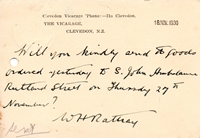 Clevedon Vicarage 'Phone:—Ha Clevedon.
THE VICARAGE,
CLEVEDON, N.Z.
18 NOV. 1930
Will you kindly send the goods
ordered yesterday to S. John Ambulance
Rutland Street on Thursday 27th
November?
W H Rattray